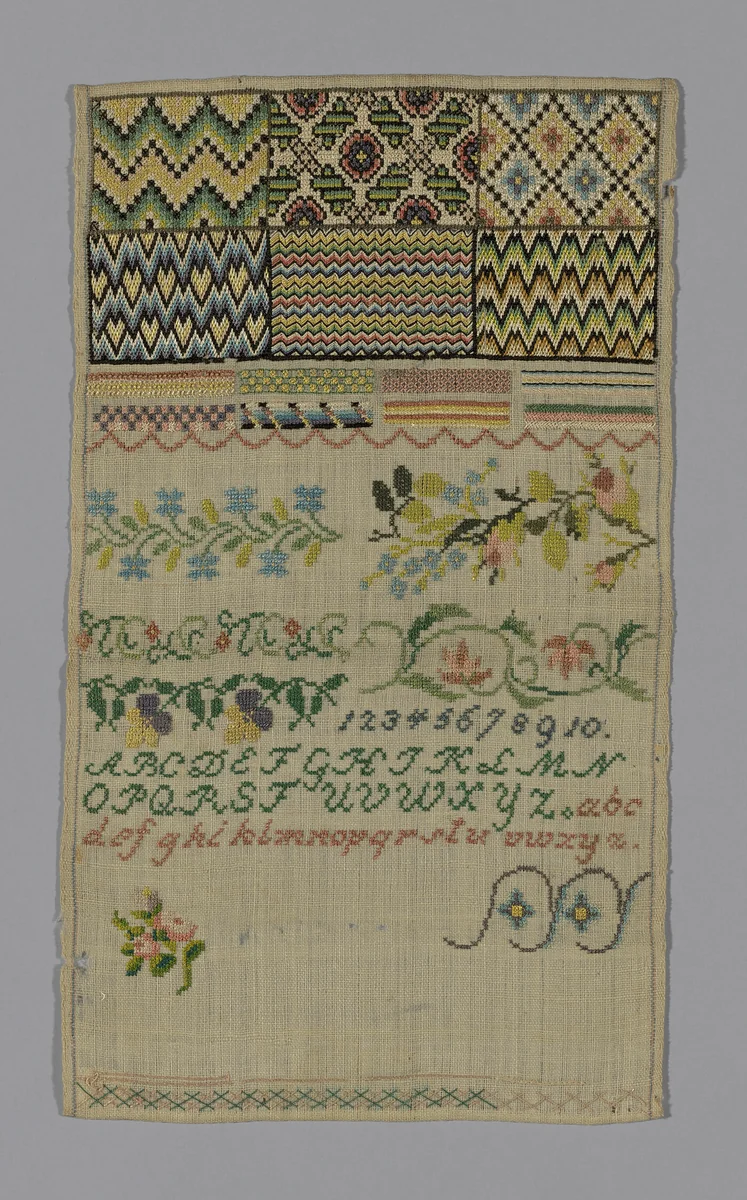 1 2 3 4 5 6 7 8 9 10.
A B C D E F G H I K L M N
O P Q R S T U V W X Y Z. a b c
d e f g h i k l m n o p q r s t u v w x y z.